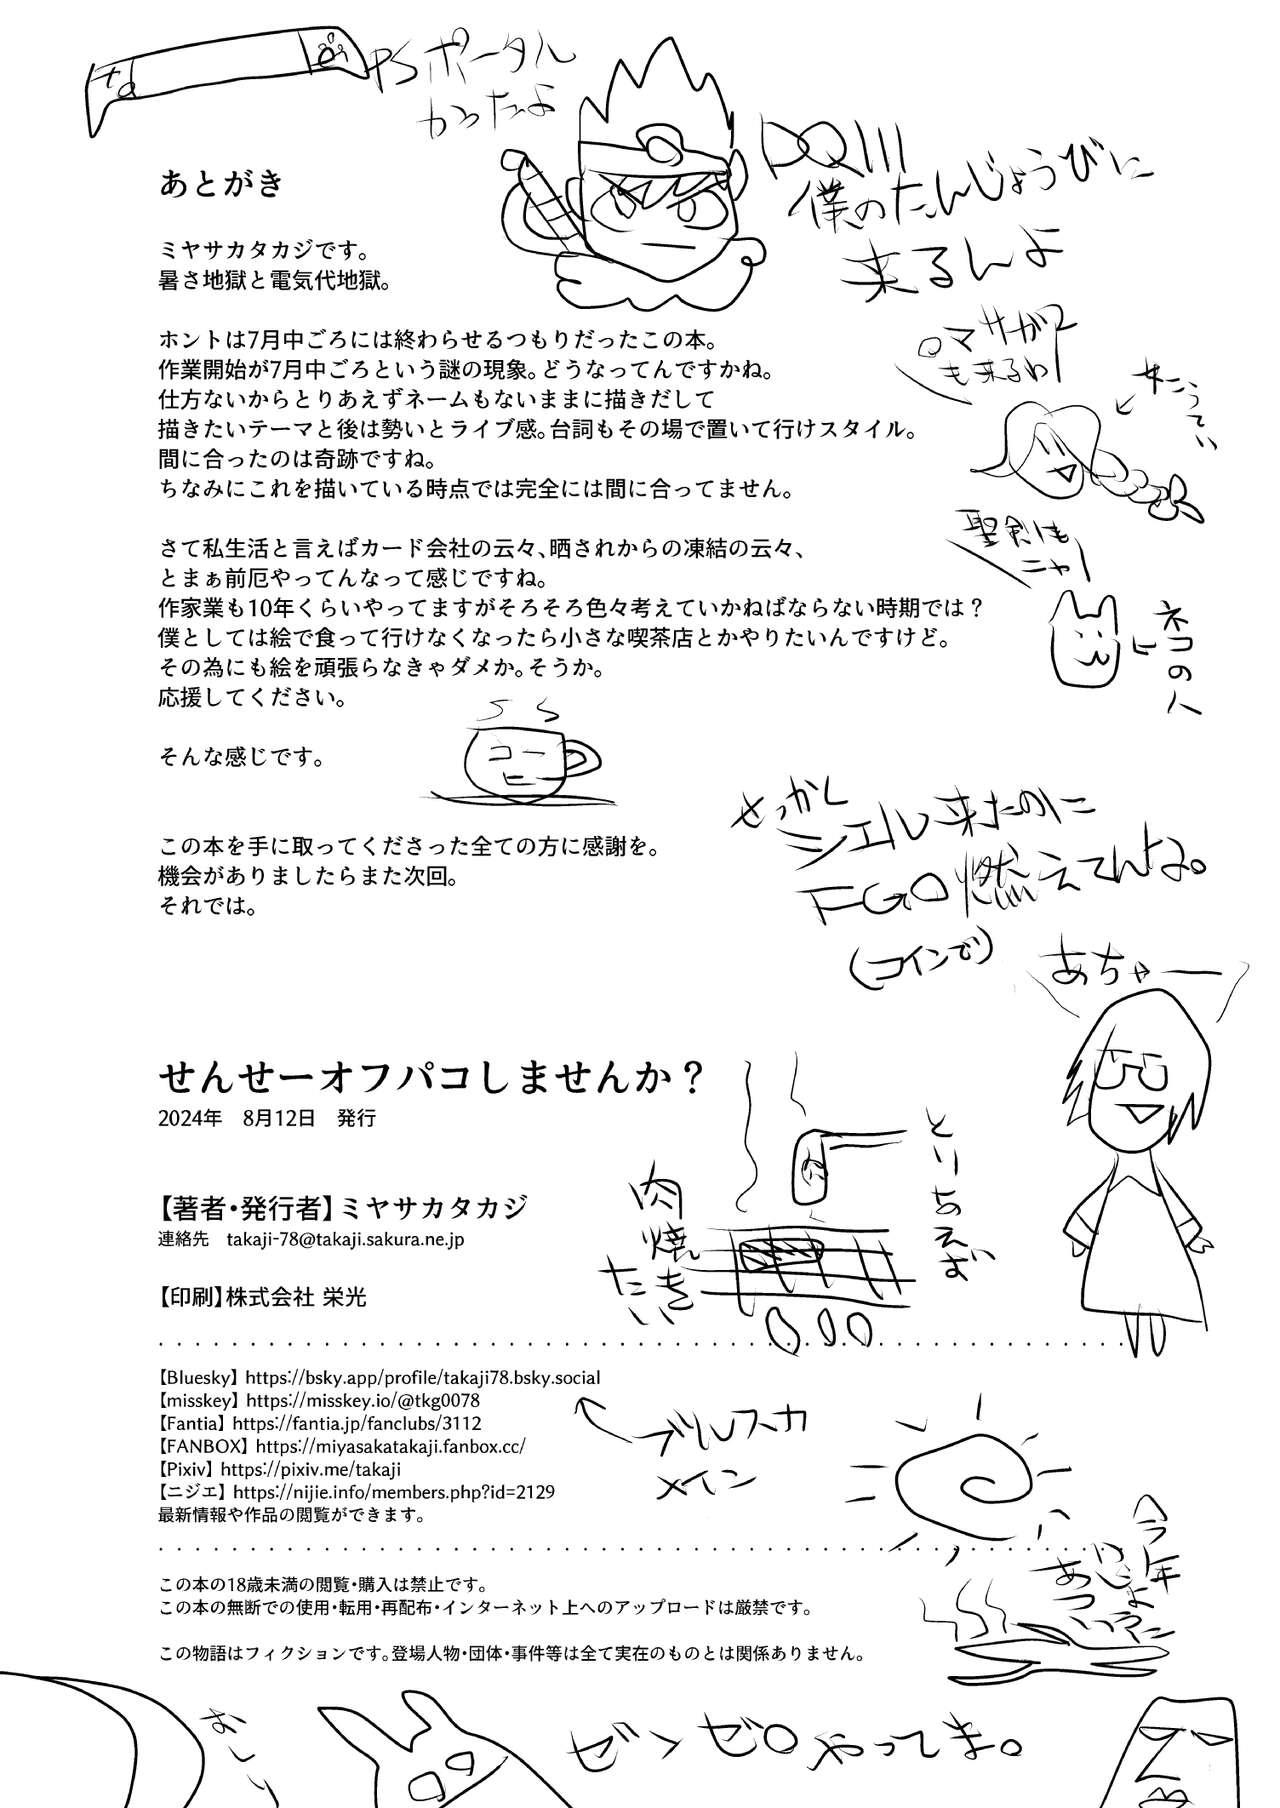 PSポータル
かったよ
DQIII
僕のたんじょうびに
来るんよ
あとがき
ミヤサカタカジです。
暑さ地獄と電気代地獄。
ロマサガ2
も来るわ
ホントは7月中ごろには終わらせるつもりだったこの本。
作業開始が7月中ごろという謎の現象。どうなってんですかね。
仕方ないからとりあえずネームもないままに描きだして
描きたいテーマと後は勢いとライブ感。台詞もその場で置いて行けスタイル。
間に合ったのは奇跡ですね。
ちなみにこれを描いている時点では完全には間に合ってません。
女こうてい
聖剣も
ニャ
ネコの人
さて私生活と言えばカード会社の云々、晒されからの凍結の云々、
とまぁ前厄やってんなって感じですね。
作家業も10年くらいやってますがそろそろ色々考えていかねばならない時期では？
僕としては絵で食って行けなくなったら小さな喫茶店とかやりたいんですけど。
その為にも絵を頑張らなきゃダメか。そうか。
応援してください。
そんな感じです。
コー
ヒー
この本を手に取ってくださった全ての方に感謝を。
機会がありましたらまた次回。
それでは。
せっかく
シエル来たのに
FGO燃えてんよ。
(コインで)
あちゃー
せんせーオフパコしませんか？
2024年　8月12日　発行
【著者・発行者】ミヤサカタカジ
連絡先　takaji-78@takaji.sakura.ne.jp
【印刷】株式会社 栄光
とりあえず
肉
焼き
たい
【Bluesky】https://bsky.app/profile/takaji78.bsky.social
【misskey】https://misskey.io/@tkg0078
【Fantia】https://fantia.jp/fanclubs/3112
【FANBOX】https://miyasakatakaji.fanbox.cc/
【Pixiv】https://pixiv.me/takaji
【ニジエ】https://nijie.info/members.php?id=2129
最新情報や作品の閲覧ができます。
ブルスカ
メイン
今年
この本の18歳未満の閲覧・購入は禁止です。
この本の無断での使用・転用・再配布・インターネット上へのアップロードは厳禁です。
この物語はフィクションです。登場人物・団体・事件等は全て実在のものとは関係ありません。
おしり
ゼンゼロやってま。